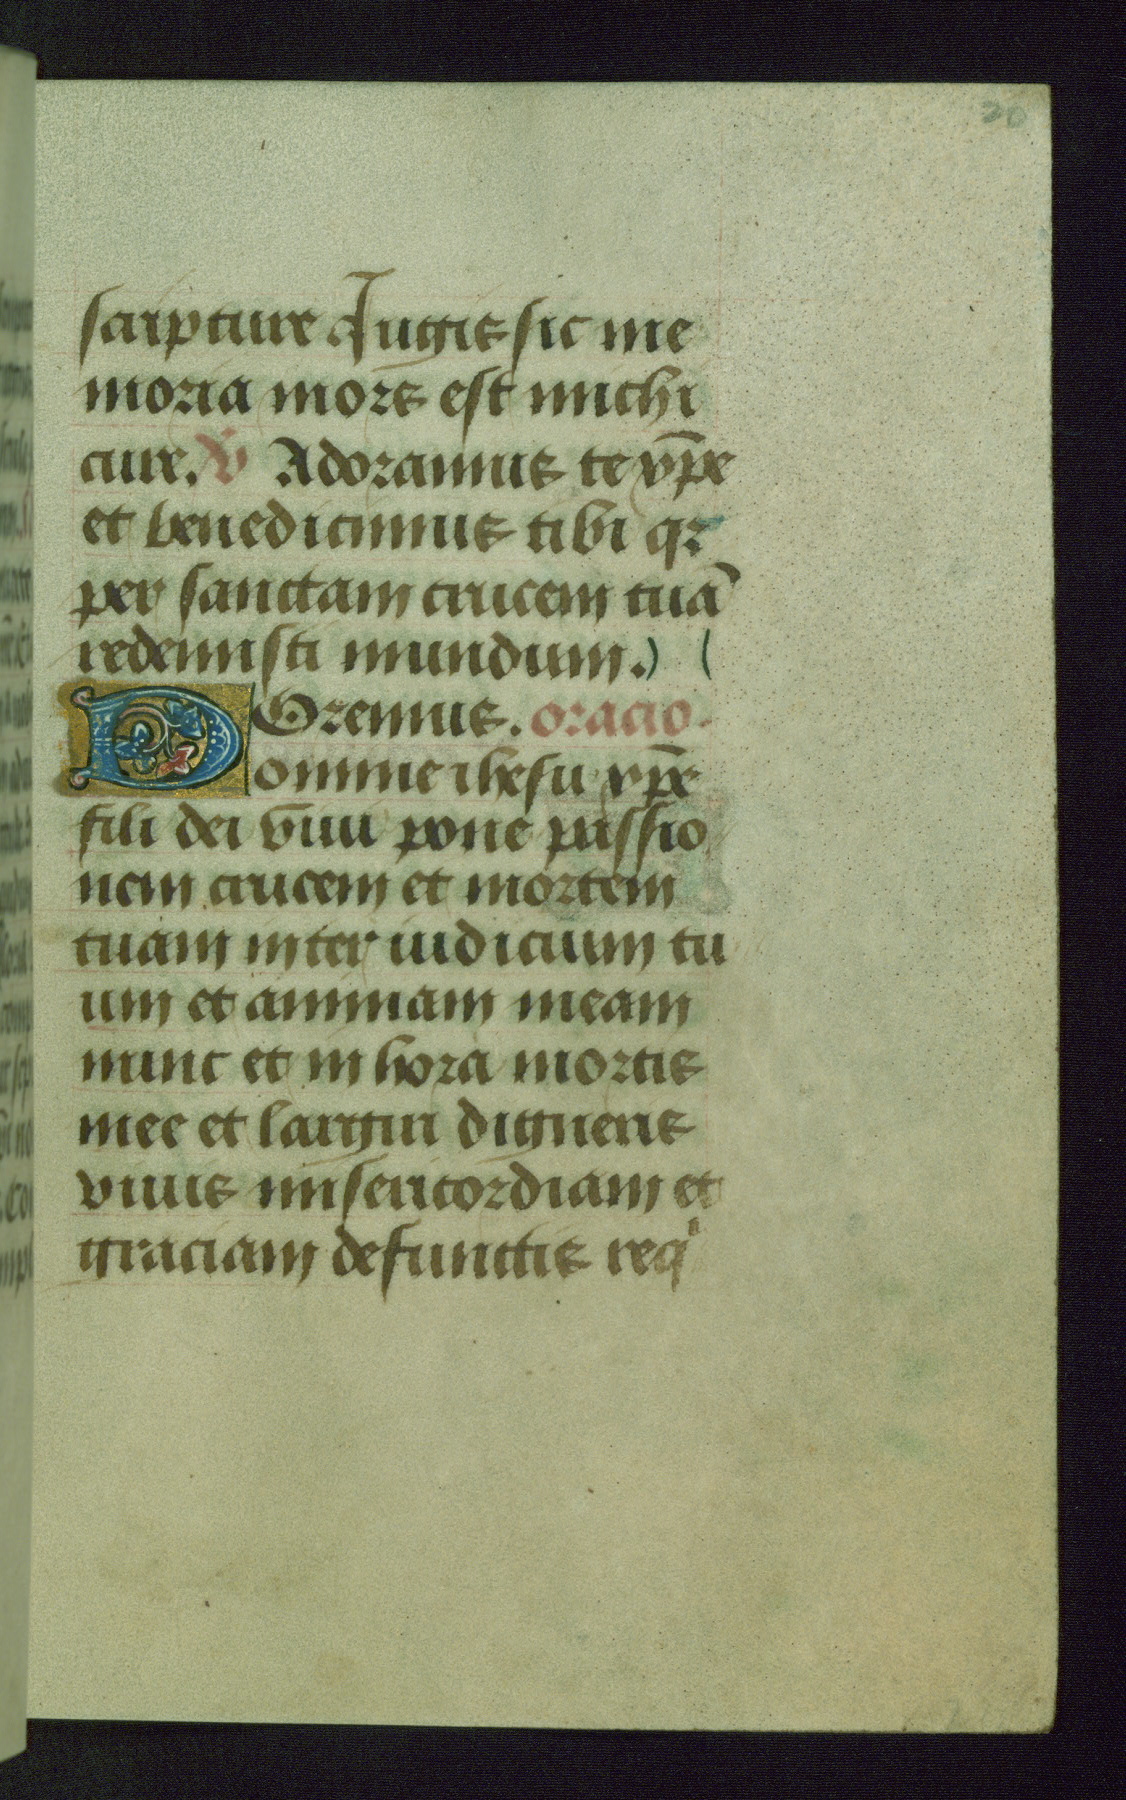 20
scripture Iugis sic me
moria mors est michi
cure. V̄ Adoramus te xp̄e
et benedicimus tibi qꝛ
per sanctam crucem tuā
redemisti mundum.) (
Oremus. oracio.
Domine ihesu xp̄e
fili dei viui pone passio
nem crucem et mortem
tuam inter iudicium tu
um et animam meam
nunc et in hora mortis
mee et largiri digneris
viuis misericordiam et
graciam defunctis reqͥ